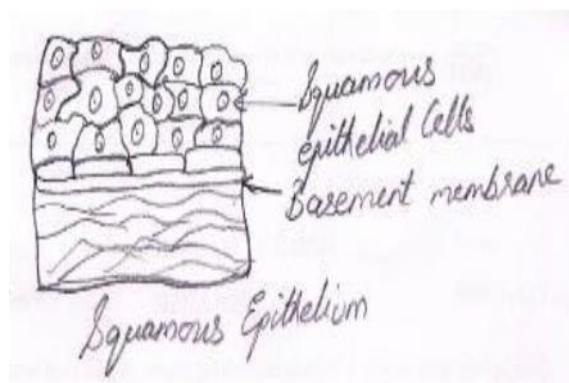 Squamous
epithelial Cells
Basement membrane
Squamous Epithelium